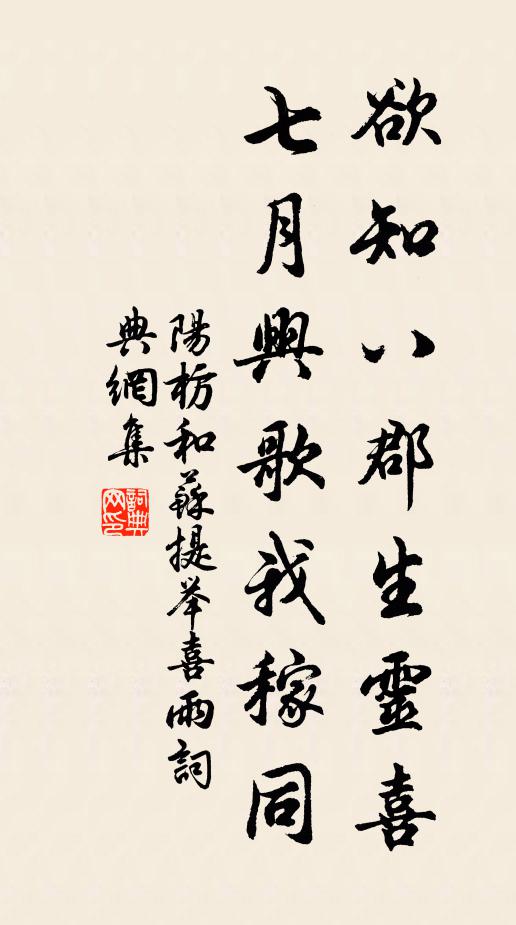 欲知八郡生靈喜
七月興歌我稼同
陽枋和蘇提举喜雨詞
典網集
詞典网印